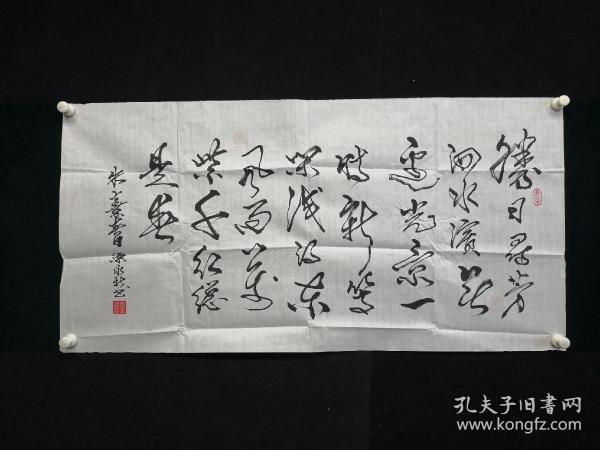 勝日尋芳
泗水濱無
邊光景一
時新等
閒識得東
風面萬
紫千紅總
是春
朱熹春日
孔夫子旧书网
www.kongfz.com